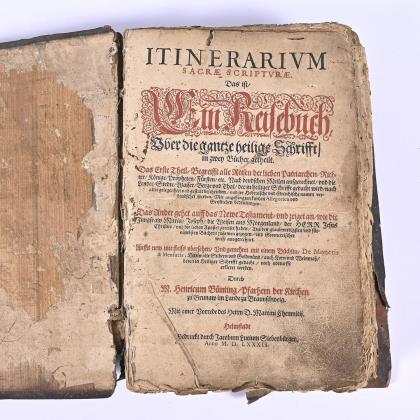 ITINERARIVM
SACRÆ SCRIPTVRÆ.
Das ist/
Ein Reisebuch/
Vber die gantze heilige Schrifft/
in zwey Bücher getheilt.
Das Erste Theil/ Begreifft alle Reisen der lieben Patriarchen/ Rich-
ter/ Könige/ Propheten/ Fürsten/ etc. Nach deudschen Meilen außgerechnet/ vnd die
Lender/ Stedte/ Wasser/ Berge vnd Thal/ der in heiliger Schrifft gedacht wird/ nach
Geistlichen
Das Ander gehet auff das Newe Testament/ vnd zeiget an/ wie die
Jungfraw Maria/ Joseph/ die Weisen aus Morgenland/ der HERR Jesus
Christus/ vnd die lieben Apostel gereiset haben/
Auffs new mit fleiß vbersehen/ Vnd gemehret mit einem Büchlin/ De Monetis
& Mensuris/
in Heiliger Schrifft gedacht/
erkleret werden.
Durch
M. Henricum Bünting/ Pfarherrn der Kirchen
zu Grunaw im Lande zu Braunschweig.
Mit einer Vorrede des Herrn D. Martini Chemnitij.
Helmstadt
Gedruckt durch Jacobum Lucium Siebenbürger,
Anno M. D. LXXXII.